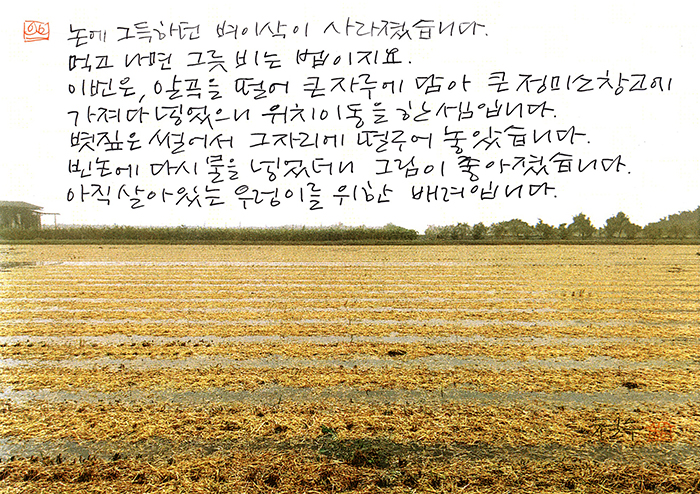 논에 그득하던 벼이삭이 사라졌습니다.
먹고 나면 그릇 비는 법이지요.
이번은, 알곡을 떨어 큰자루에 담아 큰 정미소창고에
가져다 넣었으니 위치이동을 한 셈입니다.
볏짚은 썰어서 그자리에 떨구어 놓았습니다.
빈논에 다시 물을 넣었더니 그림이 좋아졌습니다.
아직 살아있는 우렁이를 위한 배려입니다.